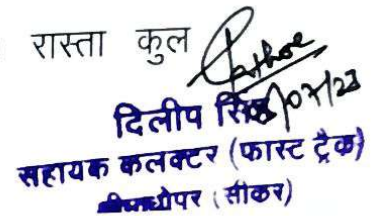 रास्ता कुल
/07/23
दिलीप सिंह
सहायक कलक्टर (फास्ट ट्रैक)
(सीकर)